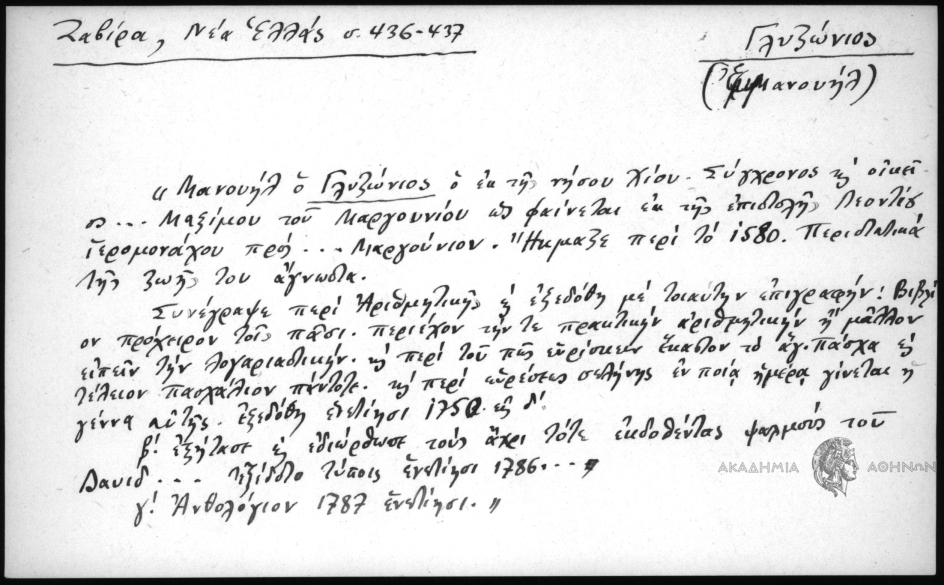 Ζαβίρα, Νέα Ἑλλάς σ. 436-437
Γλυζώνιος
(Ἐμμανουήλ)
"Μανουήλ ὁ Γλυζώνιος ὁ ἐκ τῆς νήσου Χίου. Σύγχρονος κ̀ οἰκεῖ-
ος... Μαξίμου τοῦ Μαργουνίου ὡς φαίνεται ἐκ τῆς ἐπιστολῆς Λεοντίου
ἱερομονάχου πρός... Μαργούνιον. Ἤκμαζε περί τό 1580. Περιστατικά
τῆς ζωῆς του ἄγνωστα.
Συνέγραψε περί Ἀριθμητικῆς ἡ ἐξεδόθη μέ τοιαύτην ἐπιγραφήν: Βιβλί
ον πρόχειρον τοῖς πᾶσι. περιέχον τήν τε πρακτικήν ἀριθμητικήν ἤ μᾶλλον
εἰπεῖν τήν λογαριαστικήν. κ̀ περί τοῦ πῶς εὑρίσκειν ἕκαστον τό ἅγ. πάσχα
τέλειον πασχάλιον πάντοτε. κ̀ περί εὑρέσεως σελήνης ἐν ποίᾳ ἡμέρᾳ γίνεται ἡ
γέννα αὐτῆς. ἐξεδόθη ἐνετίησι 1750 δ'.
β'. ἐξήτασε κ̀ ἐδιώρθωσε τούς ἄχρι τότε ἐκδοθέντας ψαλμούς τοῦ
Δαυίδ... τύποις ἐνετίησι 1786..."
γ'. Ἀνθολόγιον 1787 ἐνετίησι."
ΑΚΑΔΗΜΙΑ ΑΘΗΝΩΝ